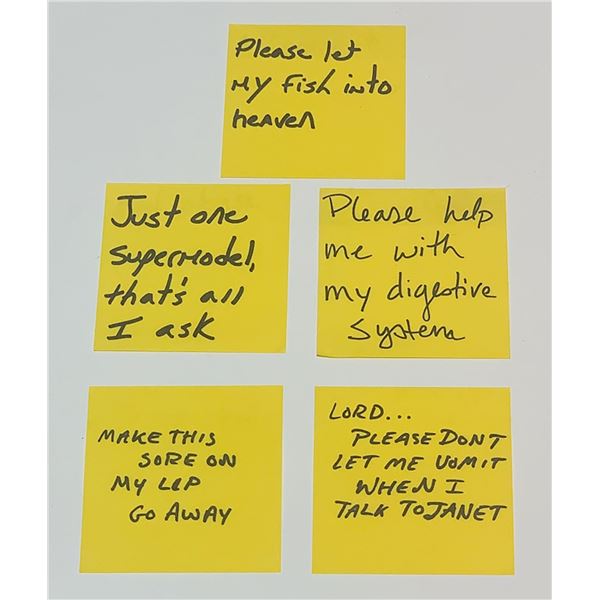 Please let
my fish into
heaven
Just one
supermodel,
that's all
I ask
Please help
me with
my digestive
system
MAKE THIS
SORE ON
MY LIP
GO AWAY
LORD...
PLEASE DONT
LET ME VOMIT
WHEN I
TALK TO JANET